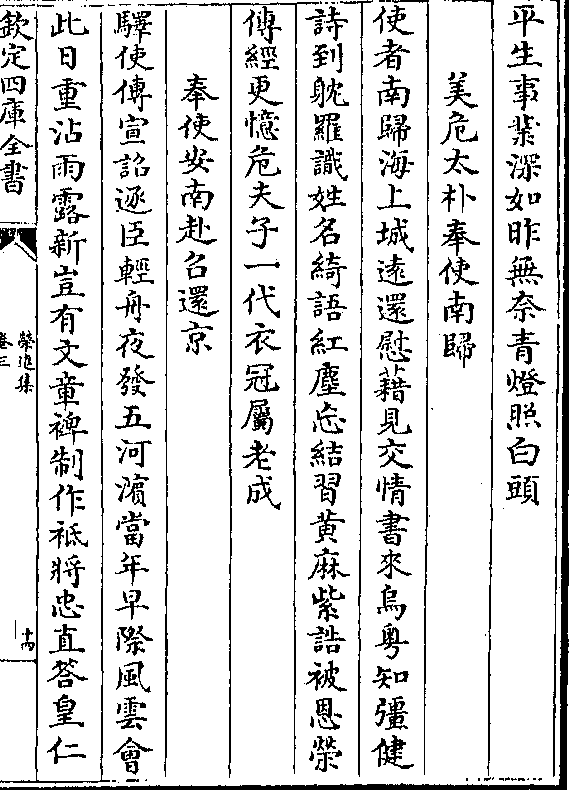 平生事業深如昨無奈青燈照白頭
美危太朴奉使南歸
使者南歸海上城遠還慰藉見交情書來烏粵知彊健
詩到躭羅識姓名綺語紅塵忘結習黃麻紫誥被恩榮
傳經更憶危夫子一代衣冠屬老成
奉使安南赴召還京
驛使傳宣詔逐臣輕舟夜發五河濵當年早際風雲會
此日重沾雨露新豈有文章裨制作祗將忠直答皇仁
欽定四庫全書
榮進集
卷三
十四